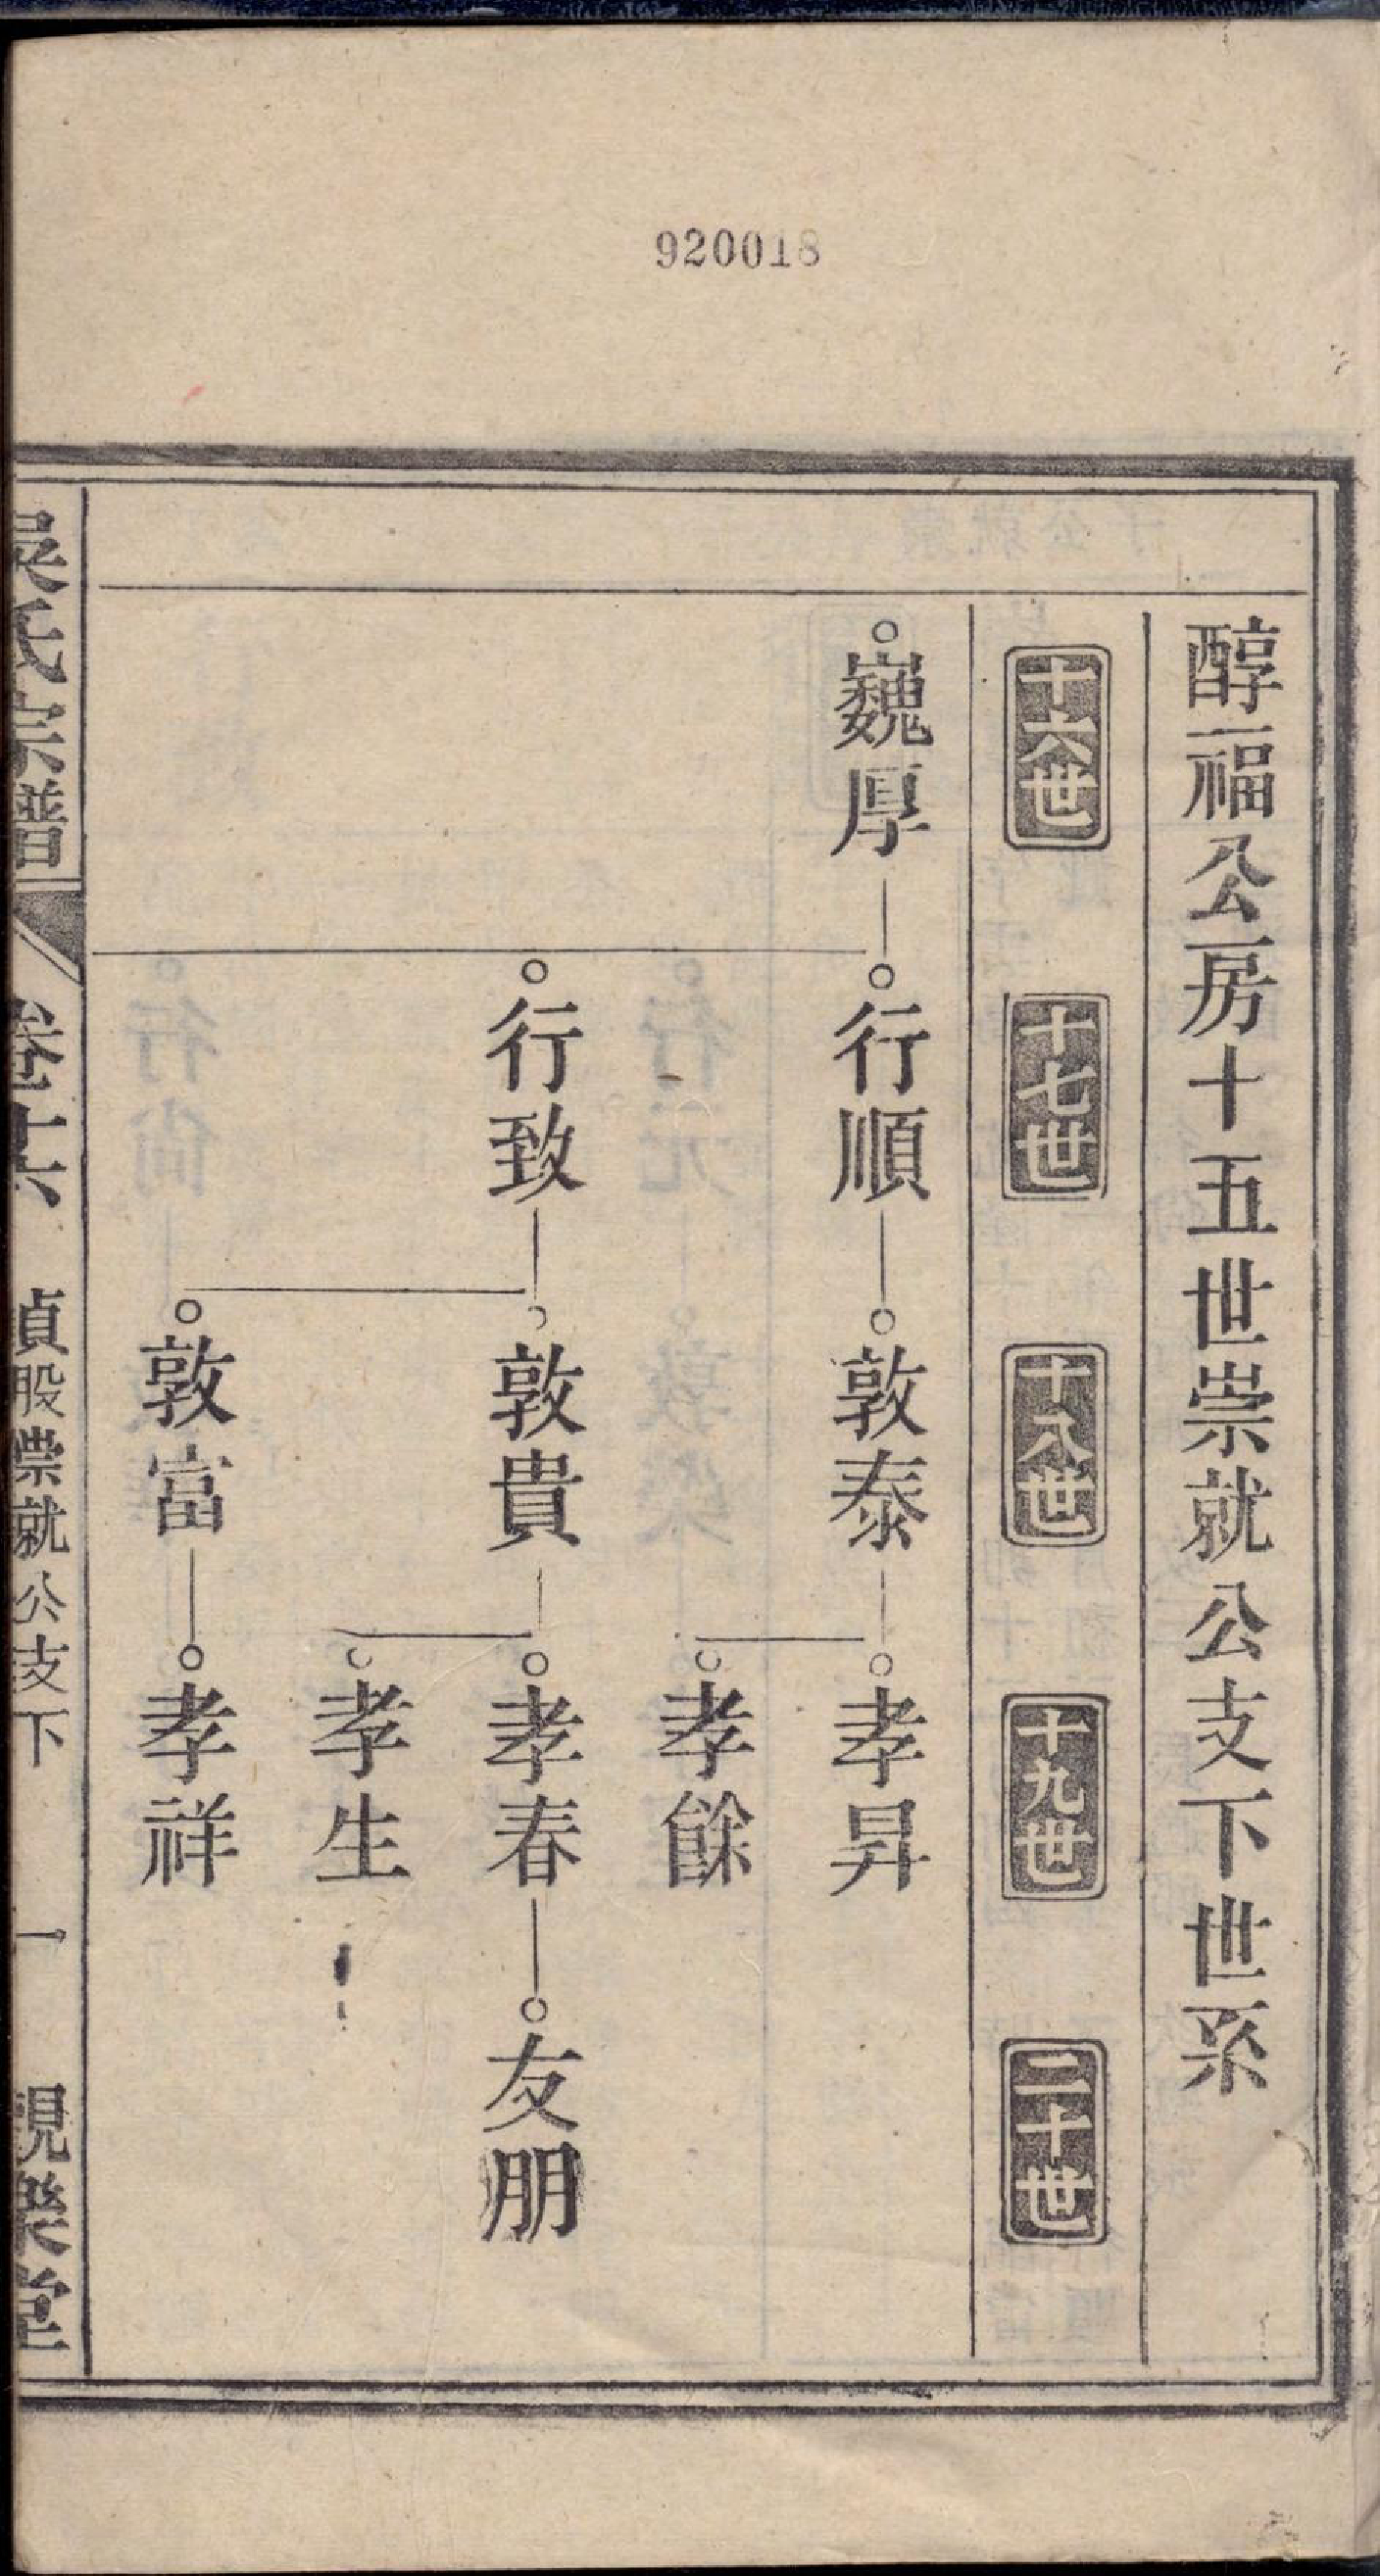 920018
醇一福公房十五世崇就公支下世系
十六世
十七世
十八世
十九世
二十世
巍厚
行順
敦泰
孝昇
孝餘
行致
敦貴
孝春
友朋
孝生
敦富
孝祥
吳氏宗譜
卷十六
貞股崇就公支下
一
親樂堂